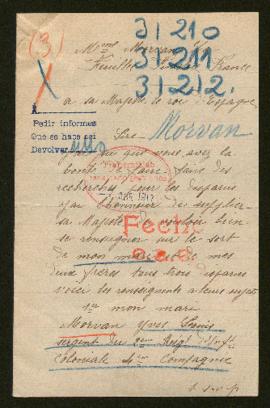 (3)
31210
31211
31212.
Mme Morvan
France
a sa Majesté le roi d'Espagne
Sire
Morvan
A
Pedir informes
Que se hace así
Devolver
que vous avez la
bonté de faire faire des
recherches pour les disparus
j'ai l'honneur de supplier
sa Majesté de vouloir bien
se renseigner sur le sort
de mon mari et de mes
deux frères tous trois disparus
voici les renseignements a leur sujet
1er mon mari
Morvan Yves
sergent du 2me Regt d'Infie
coloniale 4me Compagnie